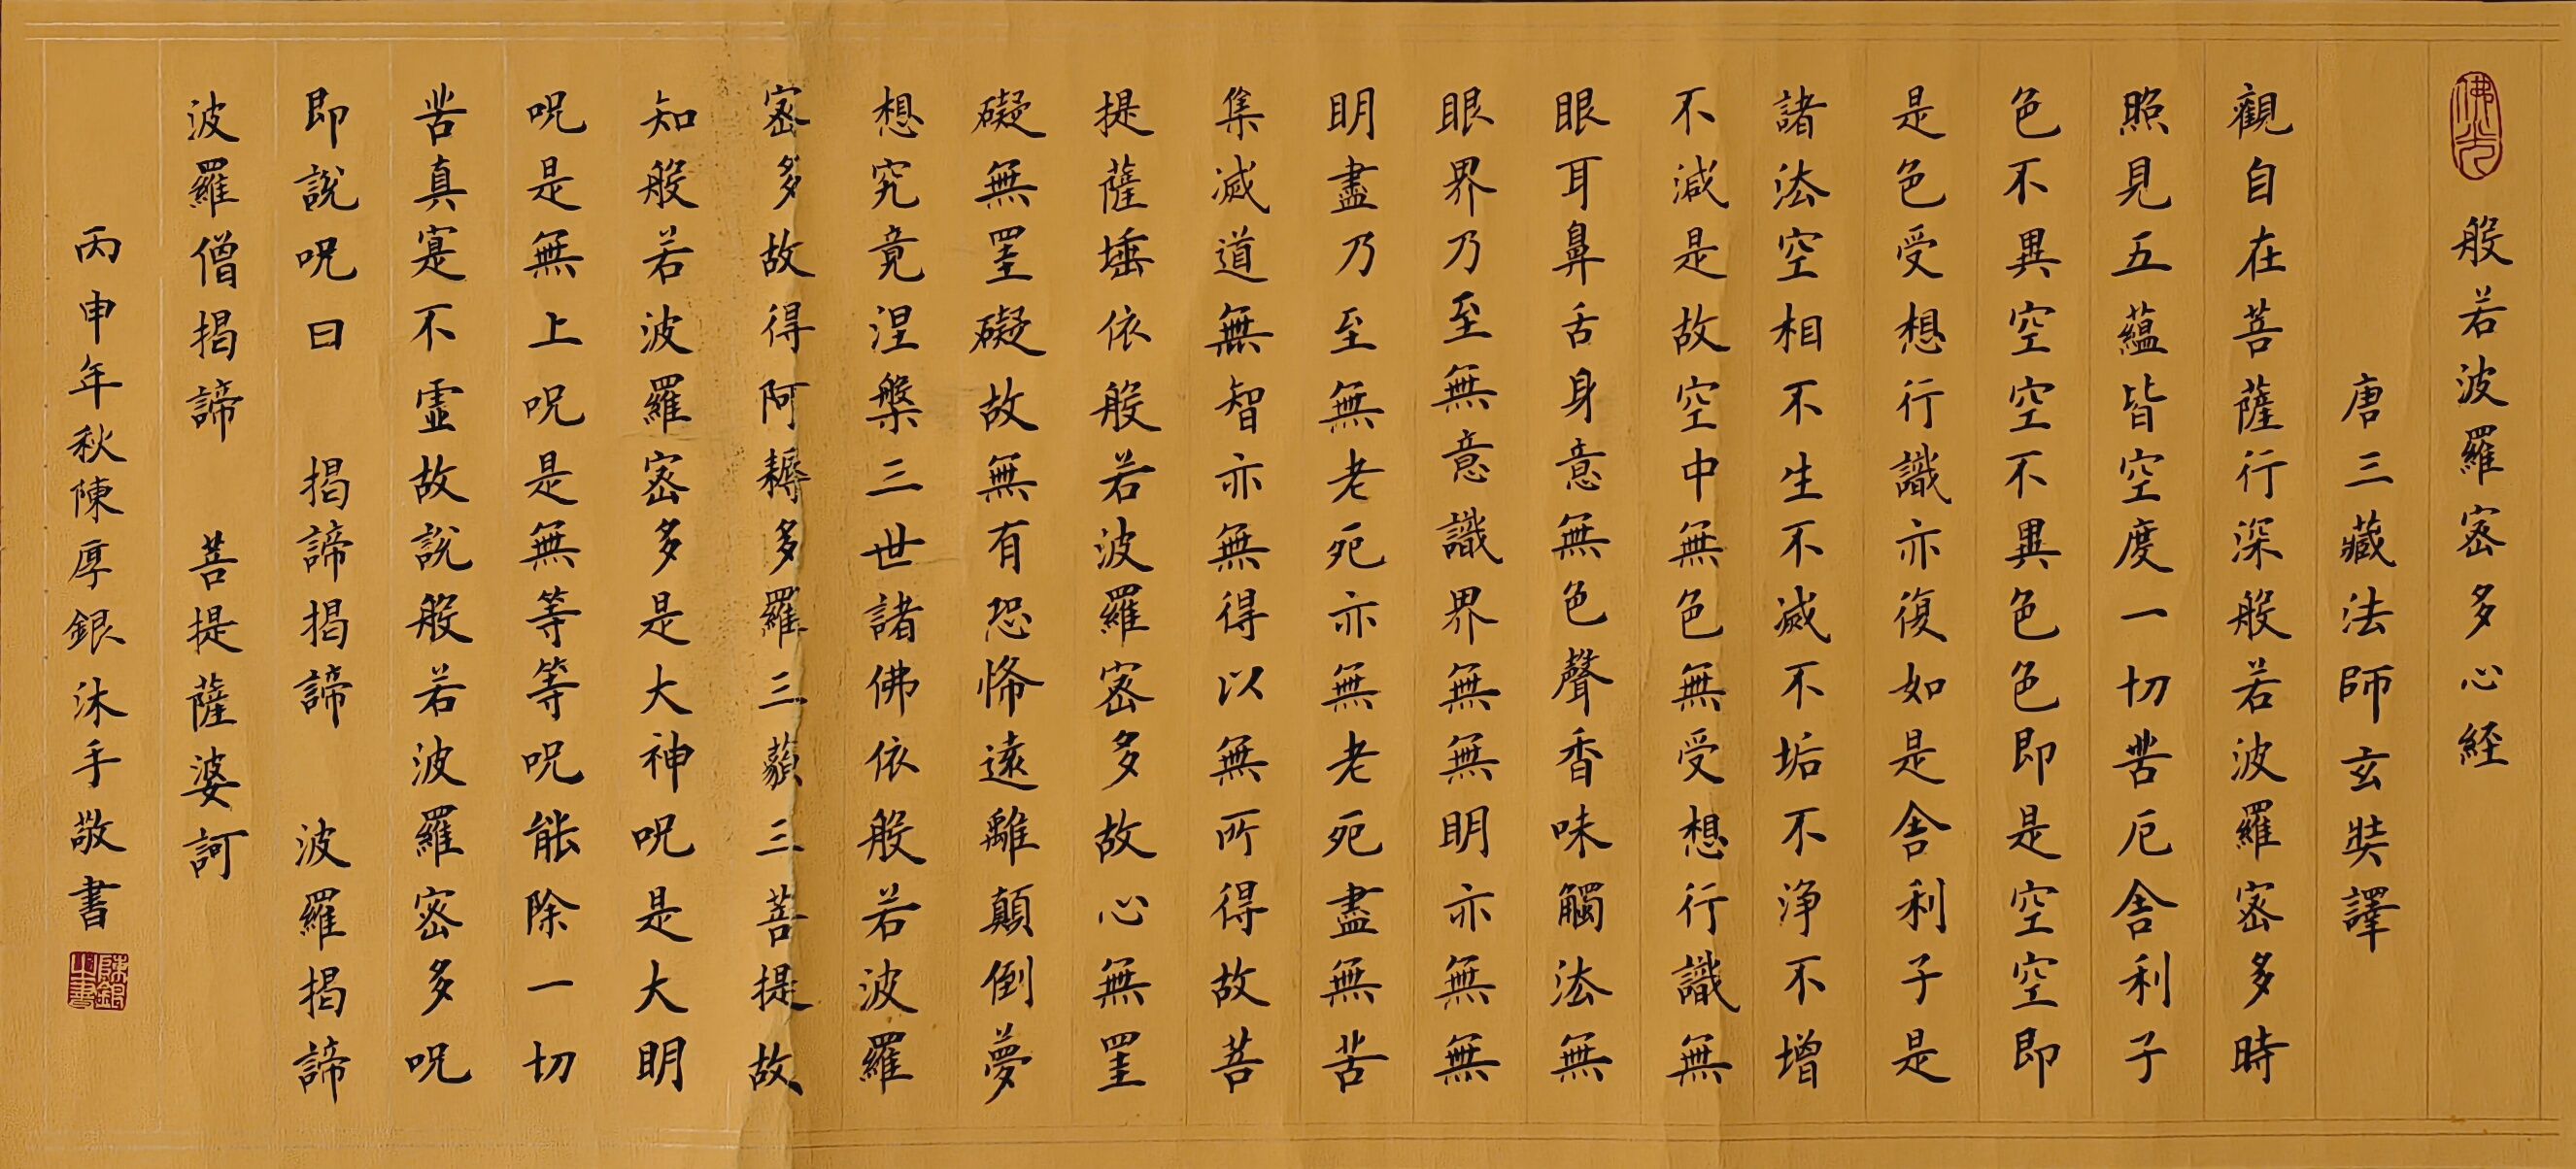 佛光
般若波羅密多心経
唐三藏法師玄奘譯
觀自在菩薩行深般若波羅密多時
照見五蘊皆空度一切苦厄舍利子
色不異空空不異色色即是空空即
是色受想行識亦復如是舍利子是
諸法空相不生不滅不垢不淨不增
不減是故空中無色無受想行識無
眼耳鼻舌身意無色聲香味觸法無
眼界乃至無意識界無無明亦無無
明盡乃至無老死亦無老死盡無苦
集滅道無智亦無得以無所得故菩
提薩埵依般若波羅密多故心無罣
礙無罣礙故無有恐怖遠離顛倒夢
想究竟涅槃三世諸佛依般若波羅
密多故得阿耨多羅三藐三菩提故
知般若波羅密多是大神呪是大明
呪是無上呪是無等等呪能除一切
苦真寔不虛故說般若波羅密多呪
即說呪曰 揭諦揭諦 波羅揭諦
波羅僧揭諦 菩提薩婆訶
丙申年秋陳厚銀沐手敬書
陳銀之書